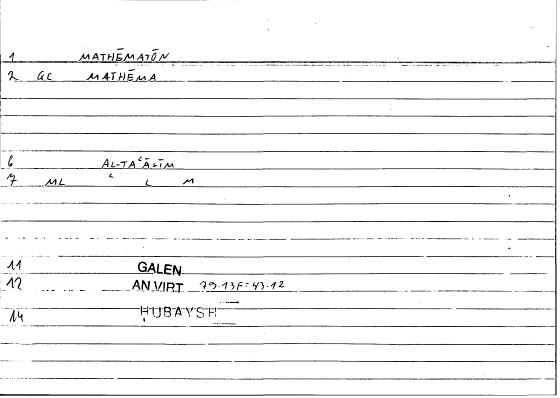 1 MATHĒMATŌN
2 GC MATHĒMA
6 AL-TAʿĀLĪM
7 ML ʿ L M
11 GALEN
12 AN.VIRT 79.13F:43.12
14 ḤUBAYSH